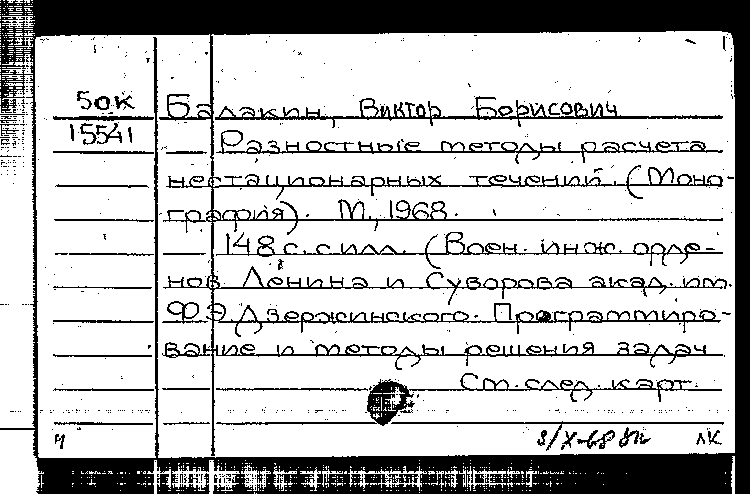 50к Балакин, Виктор Борисович
15541 Разностные методы расчета
нестационарных течений. (Моно-
графия). М., 1968.
148 с. с илл. (Воен. инж. орде-
нов Ленина и Суворова акад. им.
Ф.Э.Дзержинского. Программиро-
вание и методы решения задач
См. след. карт.
ч 3/X-68 ЛК